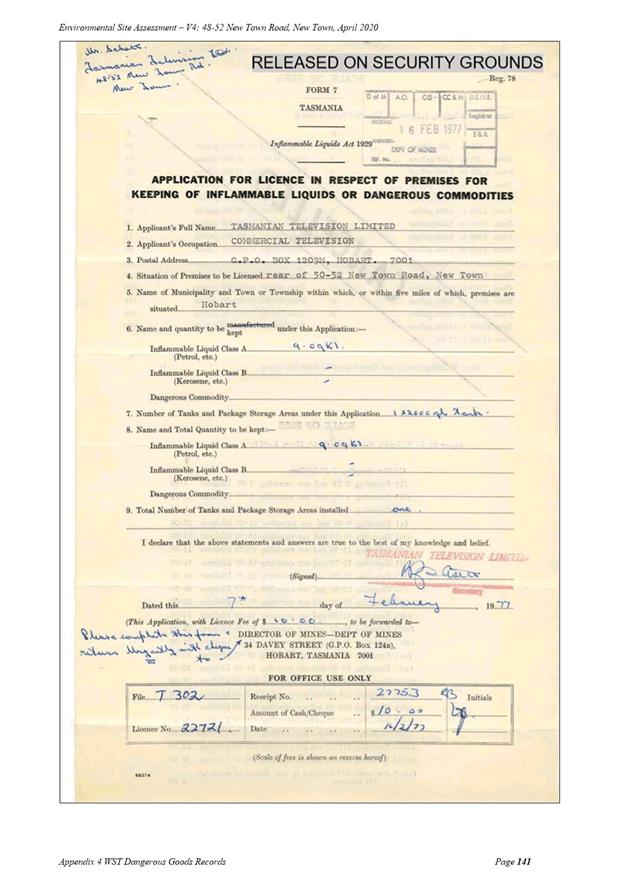 Environmental Site Assessment – V4; 48-52 New Town Road, New Town, April 2020
Mr. Schott.
Tasmanian Television Ltd.
48/52 New Town Rd.
New Town.
RELEASED ON SECURITY GROUNDS
Reg. 78
FORM 7
TASMANIA
D of M A.O. CG- CC & M O.S.I.E.
Registrar
RECEIVED
16 FEB 1977
E & R.
ANSWERED
DEPT OF MINES
REF. No.
Inflammable Liquids Act 1929
APPLICATION FOR LICENCE IN RESPECT OF PREMISES FOR
KEEPING OF INFLAMMABLE LIQUIDS OR DANGEROUS COMMODITIES
1. Applicant's Full Name TASMANIAN TELEVISION LIMITED
2. Applicant's Occupation COMMERCIAL TELEVISION
3. Postal Address G.P.O. BOX 1209M, HOBART. 7001
4. Situation of Premises to be Licensed rear of 50-52 New Town Road, New Town
5. Name of Municipality and Town or Township within which, or within five miles of which, premises are
situated Hobart
6. Name and quantity to be manufactured kept under this Application:—
Inflammable Liquid Class A 9.09Kl.
(Petrol, etc.)
Inflammable Liquid Class B –
(Kerosene, etc.) –
Dangerous Commodity
7. Number of Tanks and Package Storage Areas under this Application 1 x 2000 gl Tank.
8. Name and Total Quantity to be kept:—
Inflammable Liquid Class A 9.09Kl
(Petrol, etc.)
Inflammable Liquid Class B –
(Kerosene, etc.) –
Dangerous Commodity
9. Total Number of Tanks and Package Storage Areas installed one.
I declare that the above statements and answers are true to the best of my knowledge and belief.
TASMANIAN TELEVISION LIMITED
(Signed)
Secretary
Dated this 7th day of February, 1977
(This Application, with Licence Fee of $ 10.00, to be forwarded to—
Please complete this form &
return urgently with cheque
to
DIRECTOR OF MINES—DEPT OF MINES
34 DAVEY STREET (G.P.O. Box 124B),
HOBART, TASMANIA 7001
FOR OFFICE USE ONLY
File T 302 Receipt No. .. .. .. 27753 Initials
Amount of Cash/Cheque .. $10.00
Licence No. 22721. Date .. .. .. .. 16/2/77
(Scale of fees is shown on reverse hereof)
56374
Appendix 4 WST Dangerous Goods Records
Page 141